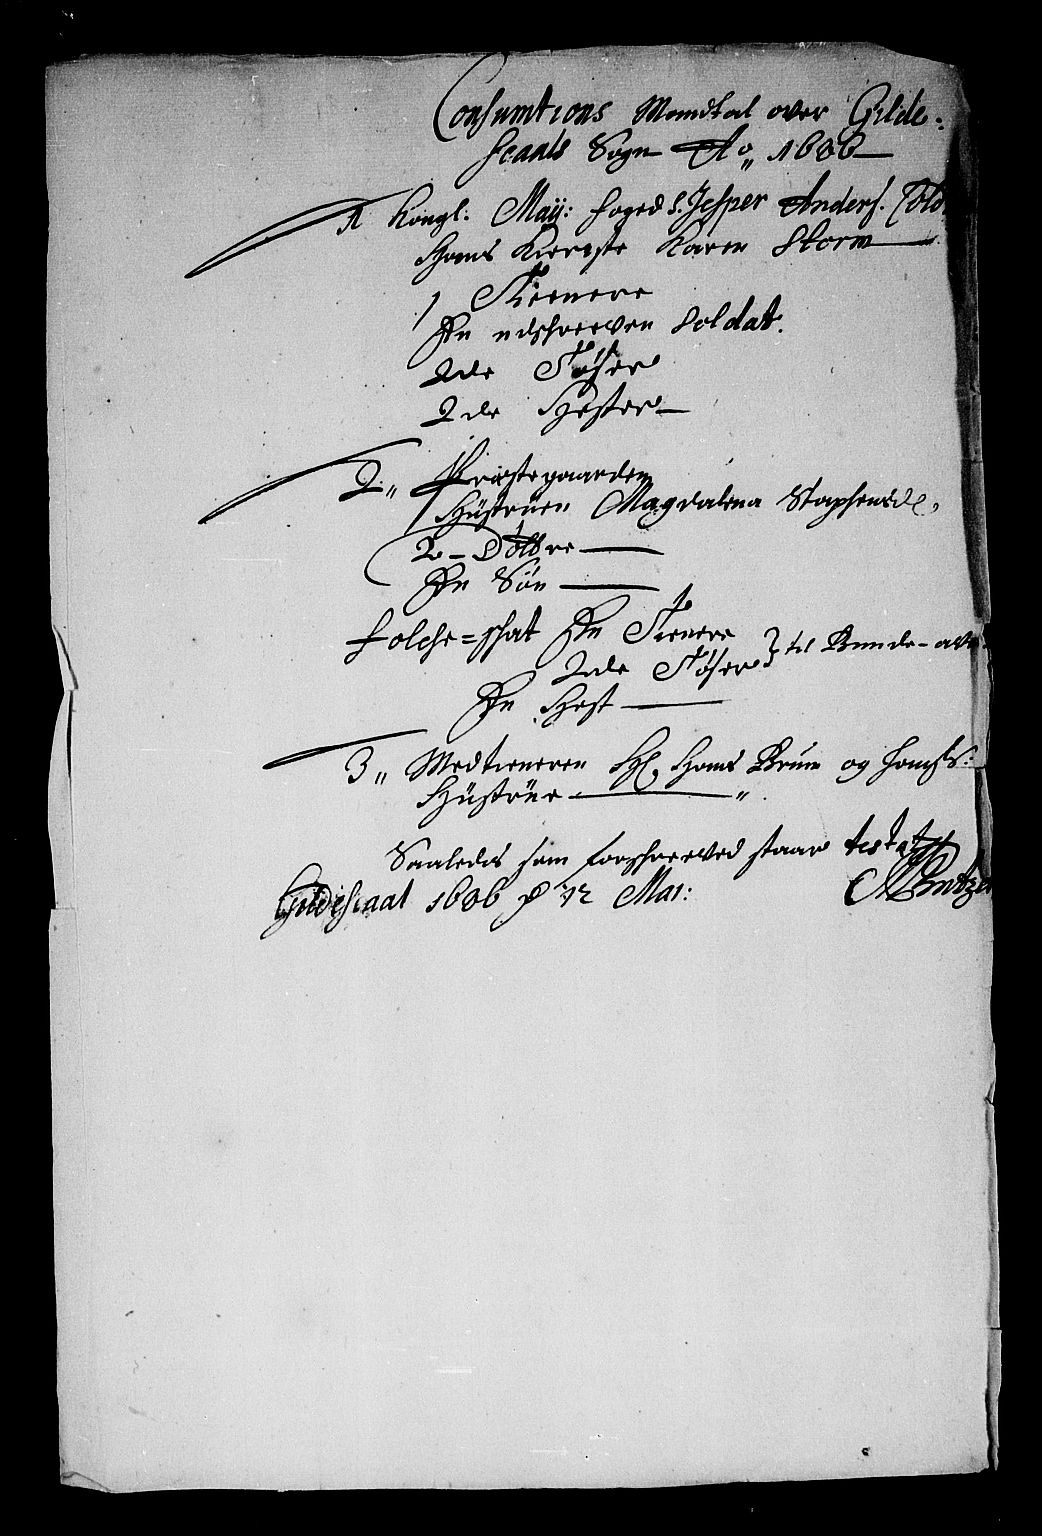 Consumtions Mandtal over Gilde-
scaals Sogn Ao 1686
1 Kongl: Maÿ: foged S. Jesper Anders.
Hans Kiereste Karen Storm
1 Tienere
En udschreeven Soldat.
2de Tøser
2de Hester
2„ Præstegaarden
Hüstruen Magdalena Staphensd.
2 Døttre
En Søn
Folche-schat En Tienere
2de Tøser } til Bunde-
En Hest
3„ Medtieneren Hl. Hans Bruun og hanss:
Hüstrue „
Saaledis som forschreeved staar testat
Gildescaal 1686 d 12 Mai: